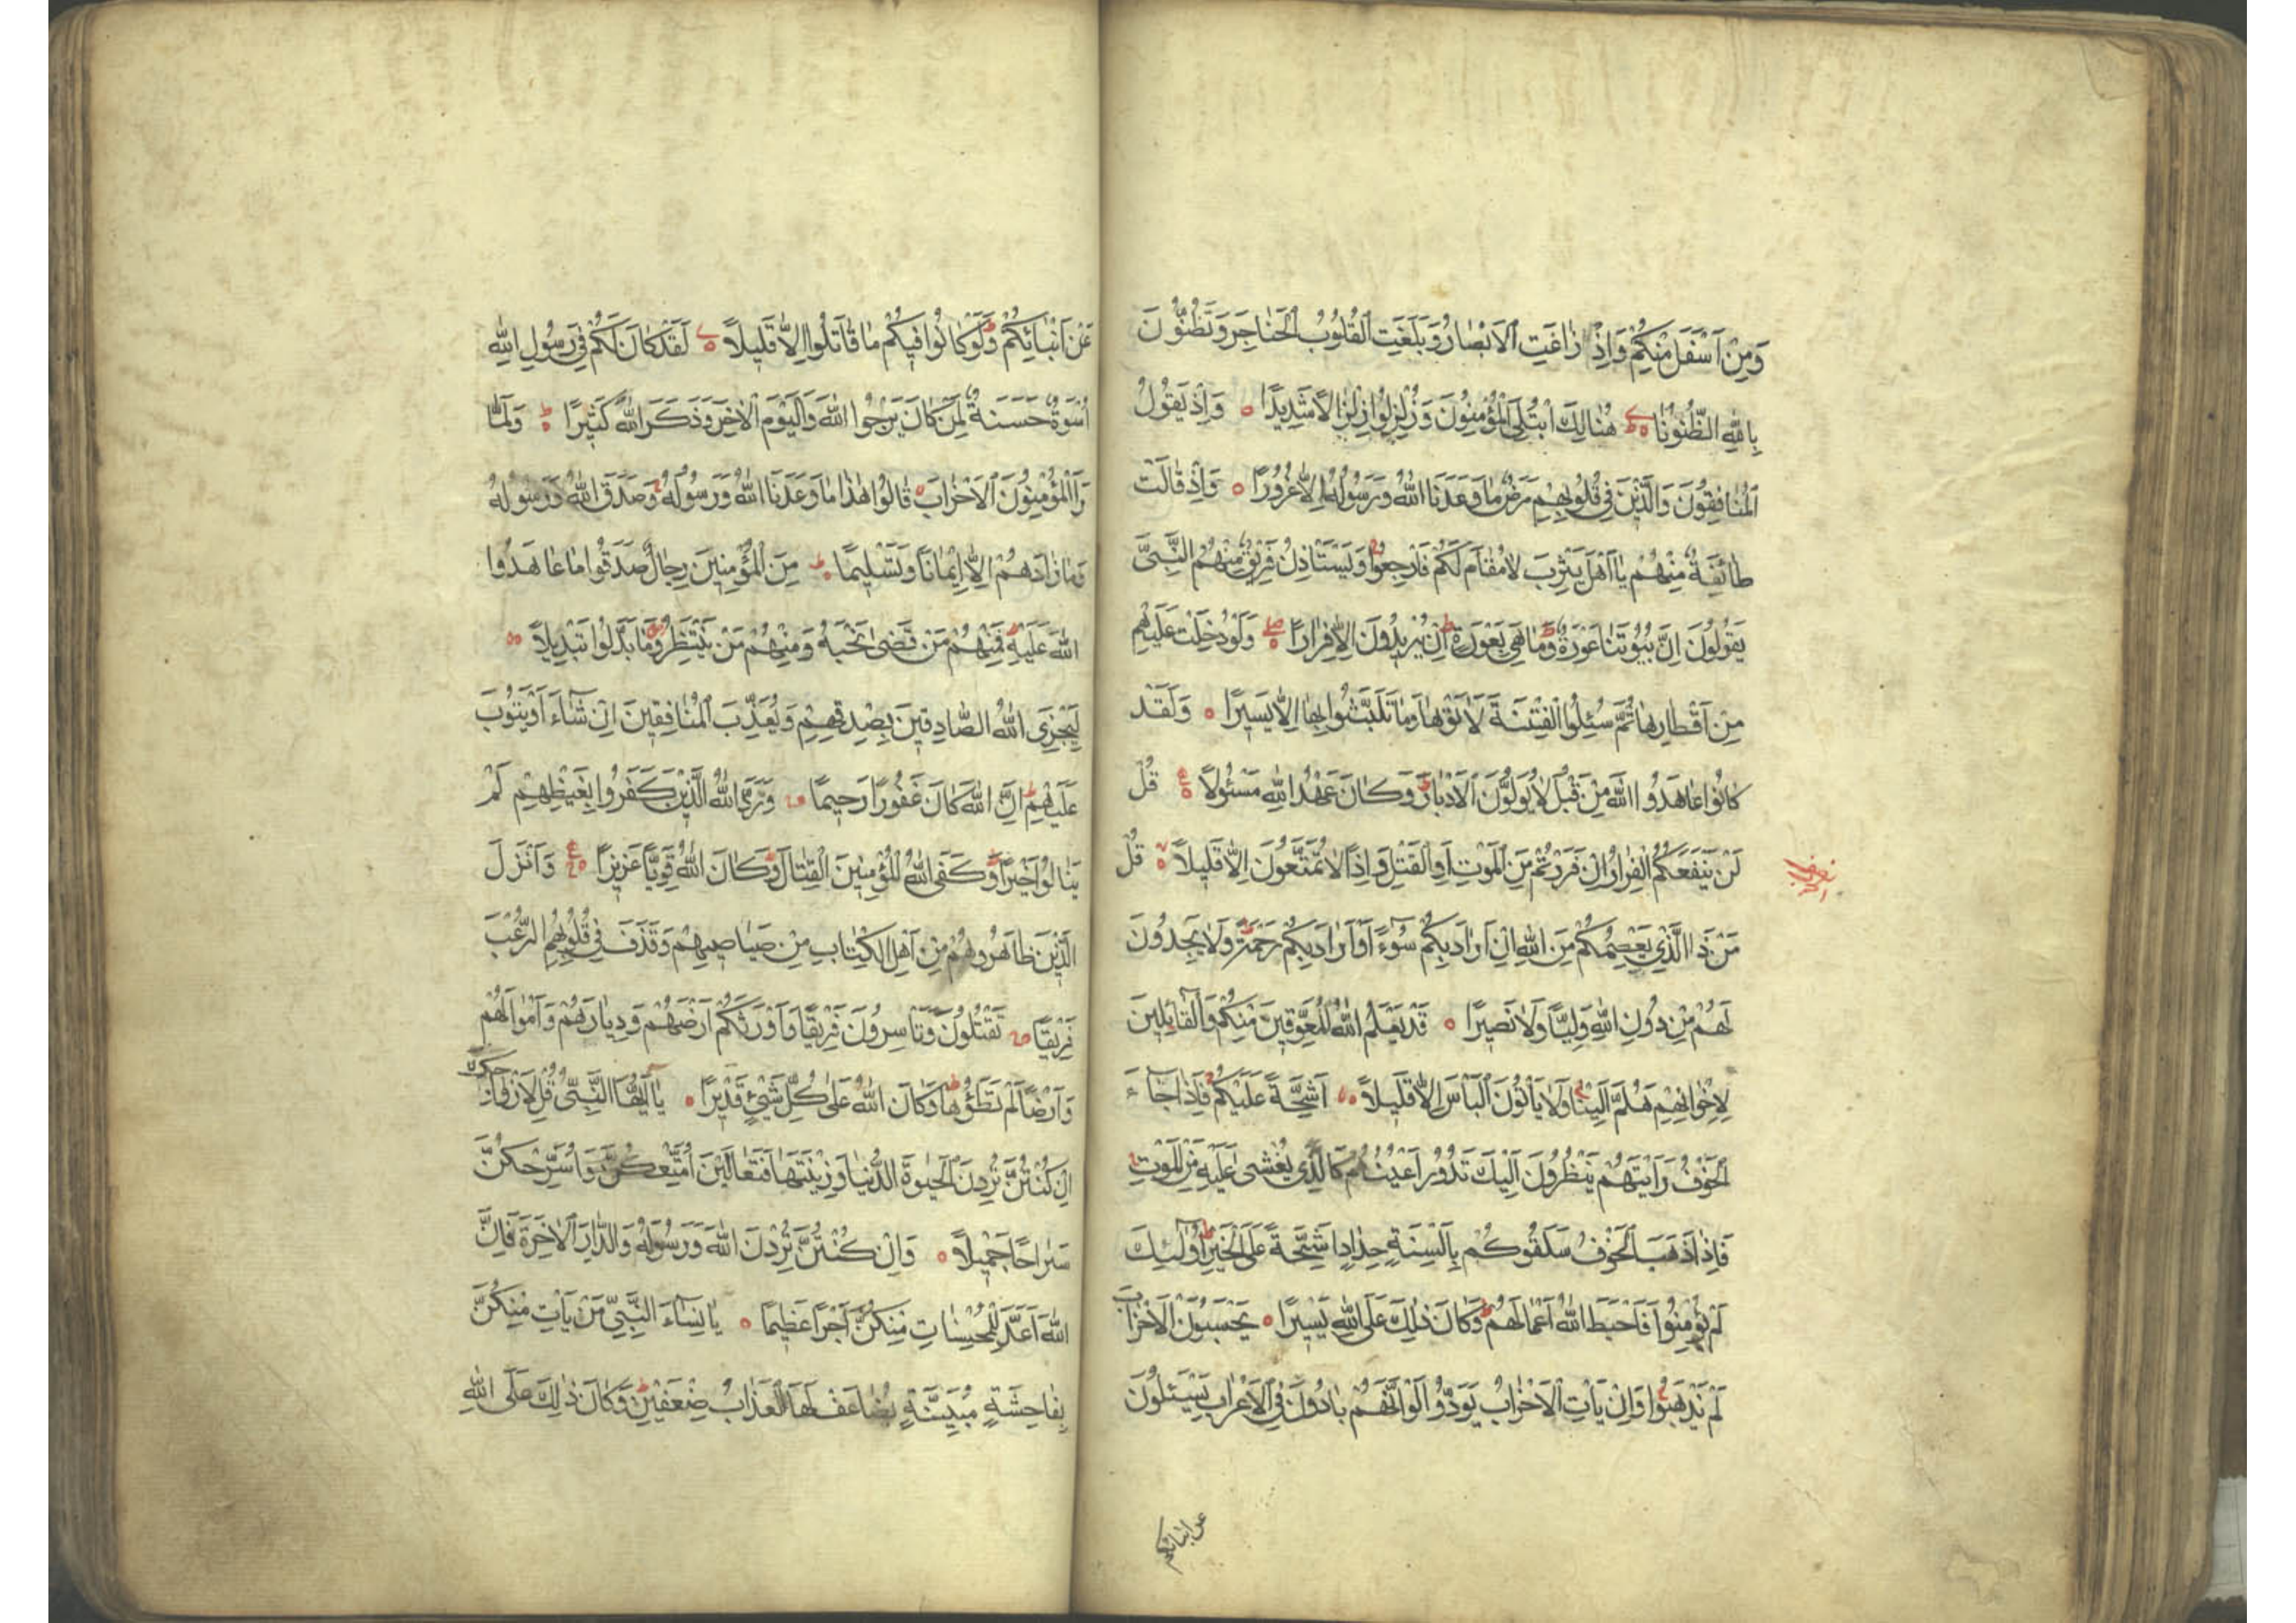 وَمِنْ اَسْفَلَ مِنْكُمْ وَاِذْ زٰاغَتِ الْاَبْصٰارُ وَبَلَغَتِ الْقُلُوبُ الْحَنٰاجِرَ وَتَظُنُّونَ
بِاللّٰهِ الظُّنُونَا هُنٰالِكَ ابْتُلِيَ الْمُؤْمِنُونَ وَزُلْزِلُوا زِلْزٰالًا شَدِيدًا وَاِذْ يَقُولُ
الْمُنٰافِقُونَ وَالَّذِينَ فِي قُلُوبِهِمْ مَرَضٌ مٰا وَعَدَنَا اللّٰهُ وَرَسُولُهُ اِلّٰا غُرُورًا وَاِذْ قٰالَتْ
طٰائِفَةٌ مِنْهُمْ يٰا اَهْلَ يَثْرِبَ لٰا مُقٰامَ لَكُمْ فَارْجِعُوا وَيَسْتَاْذِنُ فَرِيقٌ مِنْهُمُ النَّبِيَّ
يَقُولُونَ اِنَّ بُيُوتَنٰا عَوْرَةٌ وَمٰا هِيَ بِعَوْرَةٍ اِنْ يُرِيدُونَ اِلّٰا فِرٰارًا وَلَوْ دُخِلَتْ عَلَيْهِمْ
مِنْ اَقْطٰارِهٰا ثُمَّ سُئِلُوا الْفِتْنَةَ لَاٰتَوْهٰا وَمٰا تَلَبَّثُوا بِهٰا اِلّٰا يَسِيرًا وَلَقَدْ
كٰانُوا عٰاهَدُوا اللّٰهَ مِنْ قَبْلُ لٰا يُوَلُّونَ الْاَدْبٰارَ وَكٰانَ عَهْدُ اللّٰهِ مَسْئُولًا قُلْ
لَنْ يَنْفَعَكُمُ الْفِرٰارُ اِنْ فَرَرْتُمْ مِنَ الْمَوْتِ اَوِ الْقَتْلِ وَاِذًا لٰا تُمَتَّعُونَ اِلّٰا قَلِيلًا قُلْ
مَنْ ذَا الَّذِي يَعْصِمُكُمْ مِنَ اللّٰهِ اِنْ اَرٰادَ بِكُمْ سُوٓءًا اَوْ اَرٰادَ بِكُمْ رَحْمَةً وَلٰا يَجِدُونَ
لَهُمْ مِنْ دُونِ اللّٰهِ وَلِيًّا وَلٰا نَصِيرًا قَدْ يَعْلَمُ اللّٰهُ الْمُعَوِّقِينَ مِنْكُمْ وَالْقٰائِلِينَ
لِاِخْوٰانِهِمْ هَلُمَّ اِلَيْنٰا وَلٰا يَاْتُونَ الْبَاْسَ اِلّٰا قَلِيلًا اَشِحَّةً عَلَيْكُمْ فَاِذٰا جٰٓاءَ
الْخَوْفُ رَاَيْتَهُمْ يَنْظُرُونَ اِلَيْكَ تَدُورُ اَعْيُنُهُمْ كَالَّذِي يُغْشٰى عَلَيْهِ مِنَ الْمَوْتِ
فَاِذٰا ذَهَبَ الْخَوْفُ سَلَقُوكُمْ بِاَلْسِنَةٍ حِدٰادٍ اَشِحَّةً عَلَى الْخَيْرِ اُولٰٓئِكَ
لَمْ يُؤْمِنُوا فَاَحْبَطَ اللّٰهُ اَعْمٰالَهُمْ وَكٰانَ ذٰلِكَ عَلَى اللّٰهِ يَسِيرًا يَحْسَبُونَ الْاَحْزٰابَ
لَمْ يَذْهَبُوا وَاِنْ يَاْتِ الْاَحْزٰابُ يَوَدُّوا لَوْ اَنَّهُمْ بٰادُونَ فِي الْاَعْرٰابِ يَسْئَلُونَ
عن انبائكم
عَنْ اَنْبٰائِكُمْ وَلَوْ كٰانُوا فِيكُمْ مٰا قٰاتَلُوا اِلّٰا قَلِيلًا لَقَدْ كٰانَ لَكُمْ فِي رَسُولِ اللّٰهِ
اُسْوَةٌ حَسَنَةٌ لِمَنْ كٰانَ يَرْجُوا اللّٰهَ وَالْيَوْمَ الْاٰخِرَ وَذَكَرَ اللّٰهَ كَثِيرًا وَلَمّٰا
رَاَ الْمُؤْمِنُونَ الْاَحْزٰابَ قٰالُوا هٰذٰا مٰا وَعَدَنَا اللّٰهُ وَرَسُولُهُ وَصَدَقَ اللّٰهُ وَرَسُولُهُ
وَمٰا زٰادَهُمْ اِلّٰا اِيْمٰانًا وَتَسْلِيمًا مِنَ الْمُؤْمِنِينَ رِجٰالٌ صَدَقُوا مٰا عٰاهَدُوا
اللّٰهَ عَلَيْهِ فَمِنْهُمْ مَنْ قَضٰى نَحْبَهُ وَمِنْهُمْ مَنْ يَنْتَظِرُ وَمٰا بَدَّلُوا تَبْدِيلًا
لِيَجْزِيَ اللّٰهُ الصّٰادِقِينَ بِصِدْقِهِمْ وَيُعَذِّبَ الْمُنٰافِقِينَ اِنْ شٰٓاءَ اَوْ يَتُوبَ
عَلَيْهِمْ اِنَّ اللّٰهَ كٰانَ غَفُورًا رَحِيمًا وَرَدَّ اللّٰهُ الَّذِينَ كَفَرُوا بِغَيْظِهِمْ لَمْ
يَنٰالُوا خَيْرًا وَكَفَى اللّٰهُ الْمُؤْمِنِينَ الْقِتٰالَ وَكٰانَ اللّٰهُ قَوِيًّا عَزِيزًا وَاَنْزَلَ
الَّذِينَ ظٰاهَرُوهُمْ مِنْ اَهْلِ الْكِتٰابِ مِنْ صَيٰاصِيهِمْ وَقَذَفَ فِي قُلُوبِهِمُ الرُّعْبَ
فَرِيقًا تَقْتُلُونَ وَتَاْسِرُونَ فَرِيقًا وَاَوْرَثَكُمْ اَرْضَهُمْ وَدِيٰارَهُمْ وَاَمْوٰالَهُمْ
وَاَرْضًا لَمْ تَطَؤُهٰا وَكٰانَ اللّٰهُ عَلٰى كُلِّ شَيْءٍ قَدِيرًا يٰٓا اَيُّهَا النَّبِيُّ قُلْ لِاَزْوٰاجِكَ
اِنْ كُنْتُنَّ تُرِدْنَ الْحَيٰوةَ الدُّنْيٰا وَزِينَتَهٰا فَتَعٰالَيْنَ اُمَتِّعْكُنَّ وَاُسَرِّحْكُنَّ
سَرٰاحًا جَمِيلًا وَاِنْ كُنْتُنَّ تُرِدْنَ اللّٰهَ وَرَسُولَهُ وَالدّٰارَ الْاٰخِرَةَ فَاِنَّ
اللّٰهَ اَعَدَّ لِلْمُحْسِنٰاتِ مِنْكُنَّ اَجْرًا عَظِيمًا يٰا نِسٰٓاءَ النَّبِيِّ مَنْ يَاْتِ مِنْكُنَّ
بِفٰاحِشَةٍ مُبَيِّنَةٍ يُضٰاعَفْ لَهَا الْعَذٰابُ ضِعْفَيْنِ وَكٰانَ ذٰلِكَ عَلَى اللّٰهِ